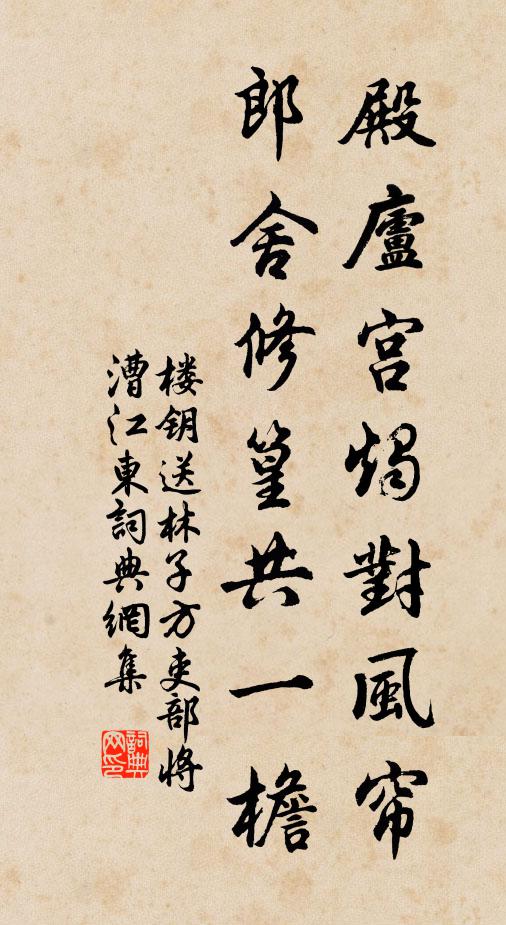 殿廬宮燭對風帘
郎舍修篁共一檐
楼钥送林子方吏部將
漕江東詞典網集
詞典
网印